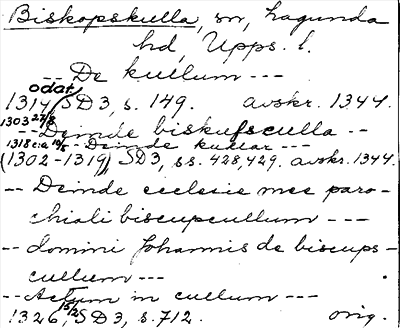 Biskopskulla, sn, Lagunda
hd, Upps. l.
-- De kullum ---
odat,
1314/SD3, s. 149. avskr. 1344.
1303 27/8
-- Deinde biskufsculla --
1318 c:a 10/5 -- Deinde kuclar ---
(1302-1319) SD3, ss. 428, 429. avskr. 1344.
-- Deinde ecclesie mee paro-
chiali biscupcullum ---
-- domini Johannis de biscups-
cullum ---
-- Actum in cullum ---
1326 15/2 SD3, s. 712. orig.